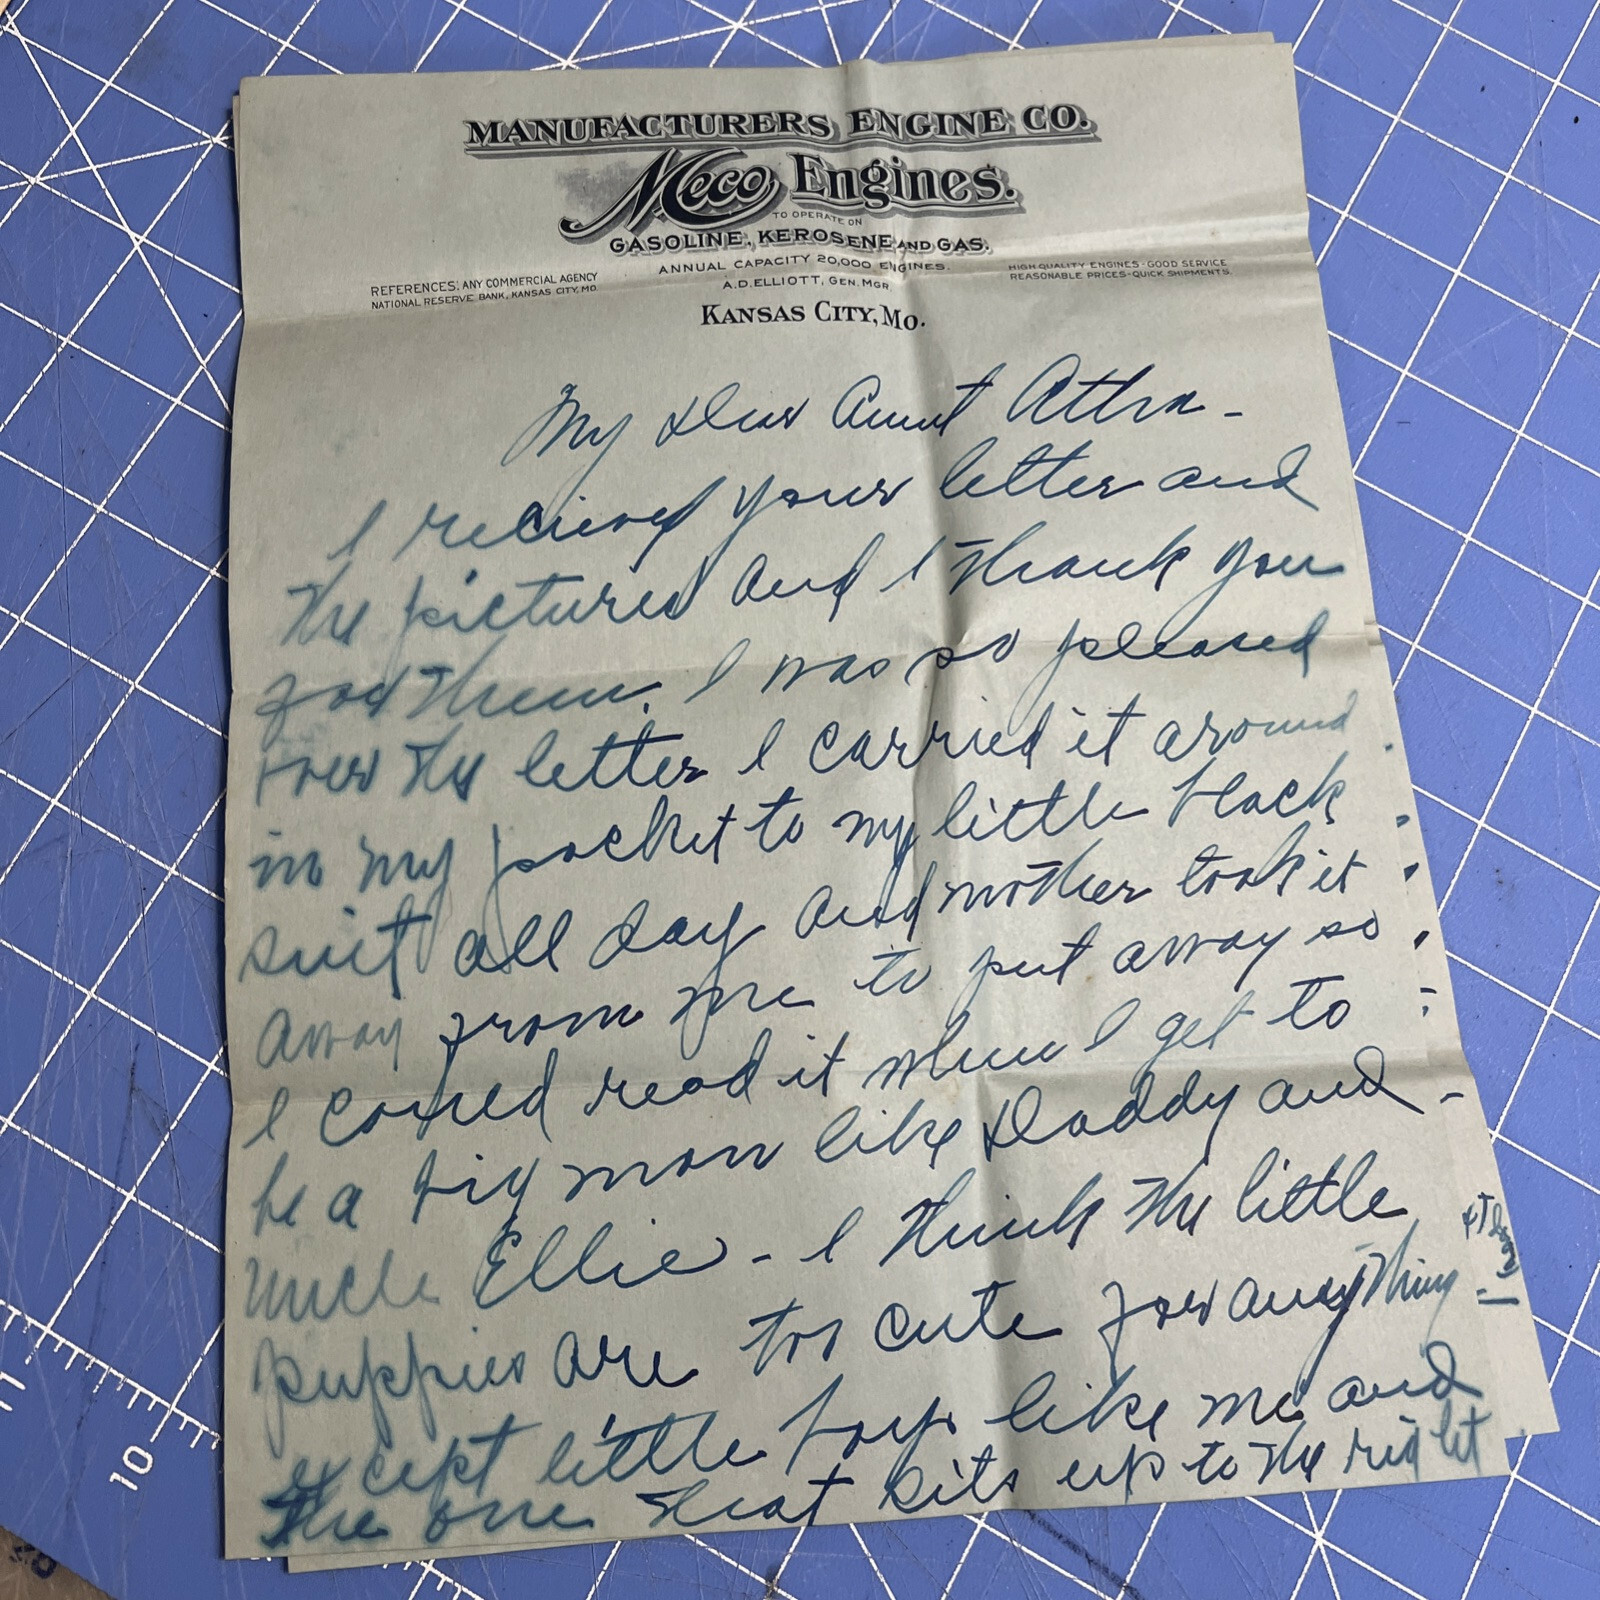 MANUFACTURERS ENGINE CO.
Meco Engines.
TO OPERATE ON
GASOLINE, KEROSENE AND GAS.
ANNUAL CAPACITY 20,000 ENGINES.
A.D. ELLIOTT, GEN. MGR.
REFERENCES: ANY COMMERCIAL AGENCY
NATIONAL RESERVE BANK, KANSAS CITY, MO.
HIGH QUALITY ENGINES - GOOD SERVICE
REASONABLE PRICES - QUICK SHIPMENTS.
KANSAS CITY, MO.
My dear Aunt Attra -
I recieved your letter and
the pictures and I thank you
for them. I was so pleased
over the letter I carried it around
in my pocket to my little black
suit all day and mother took it
away from me to put away so
I coued read it when I get to
be a big man like Daddy and -
Uncle Ellie - I think the little
puppies are too cute for anything
except little boys like me and
the one that sits up to the right
10
11